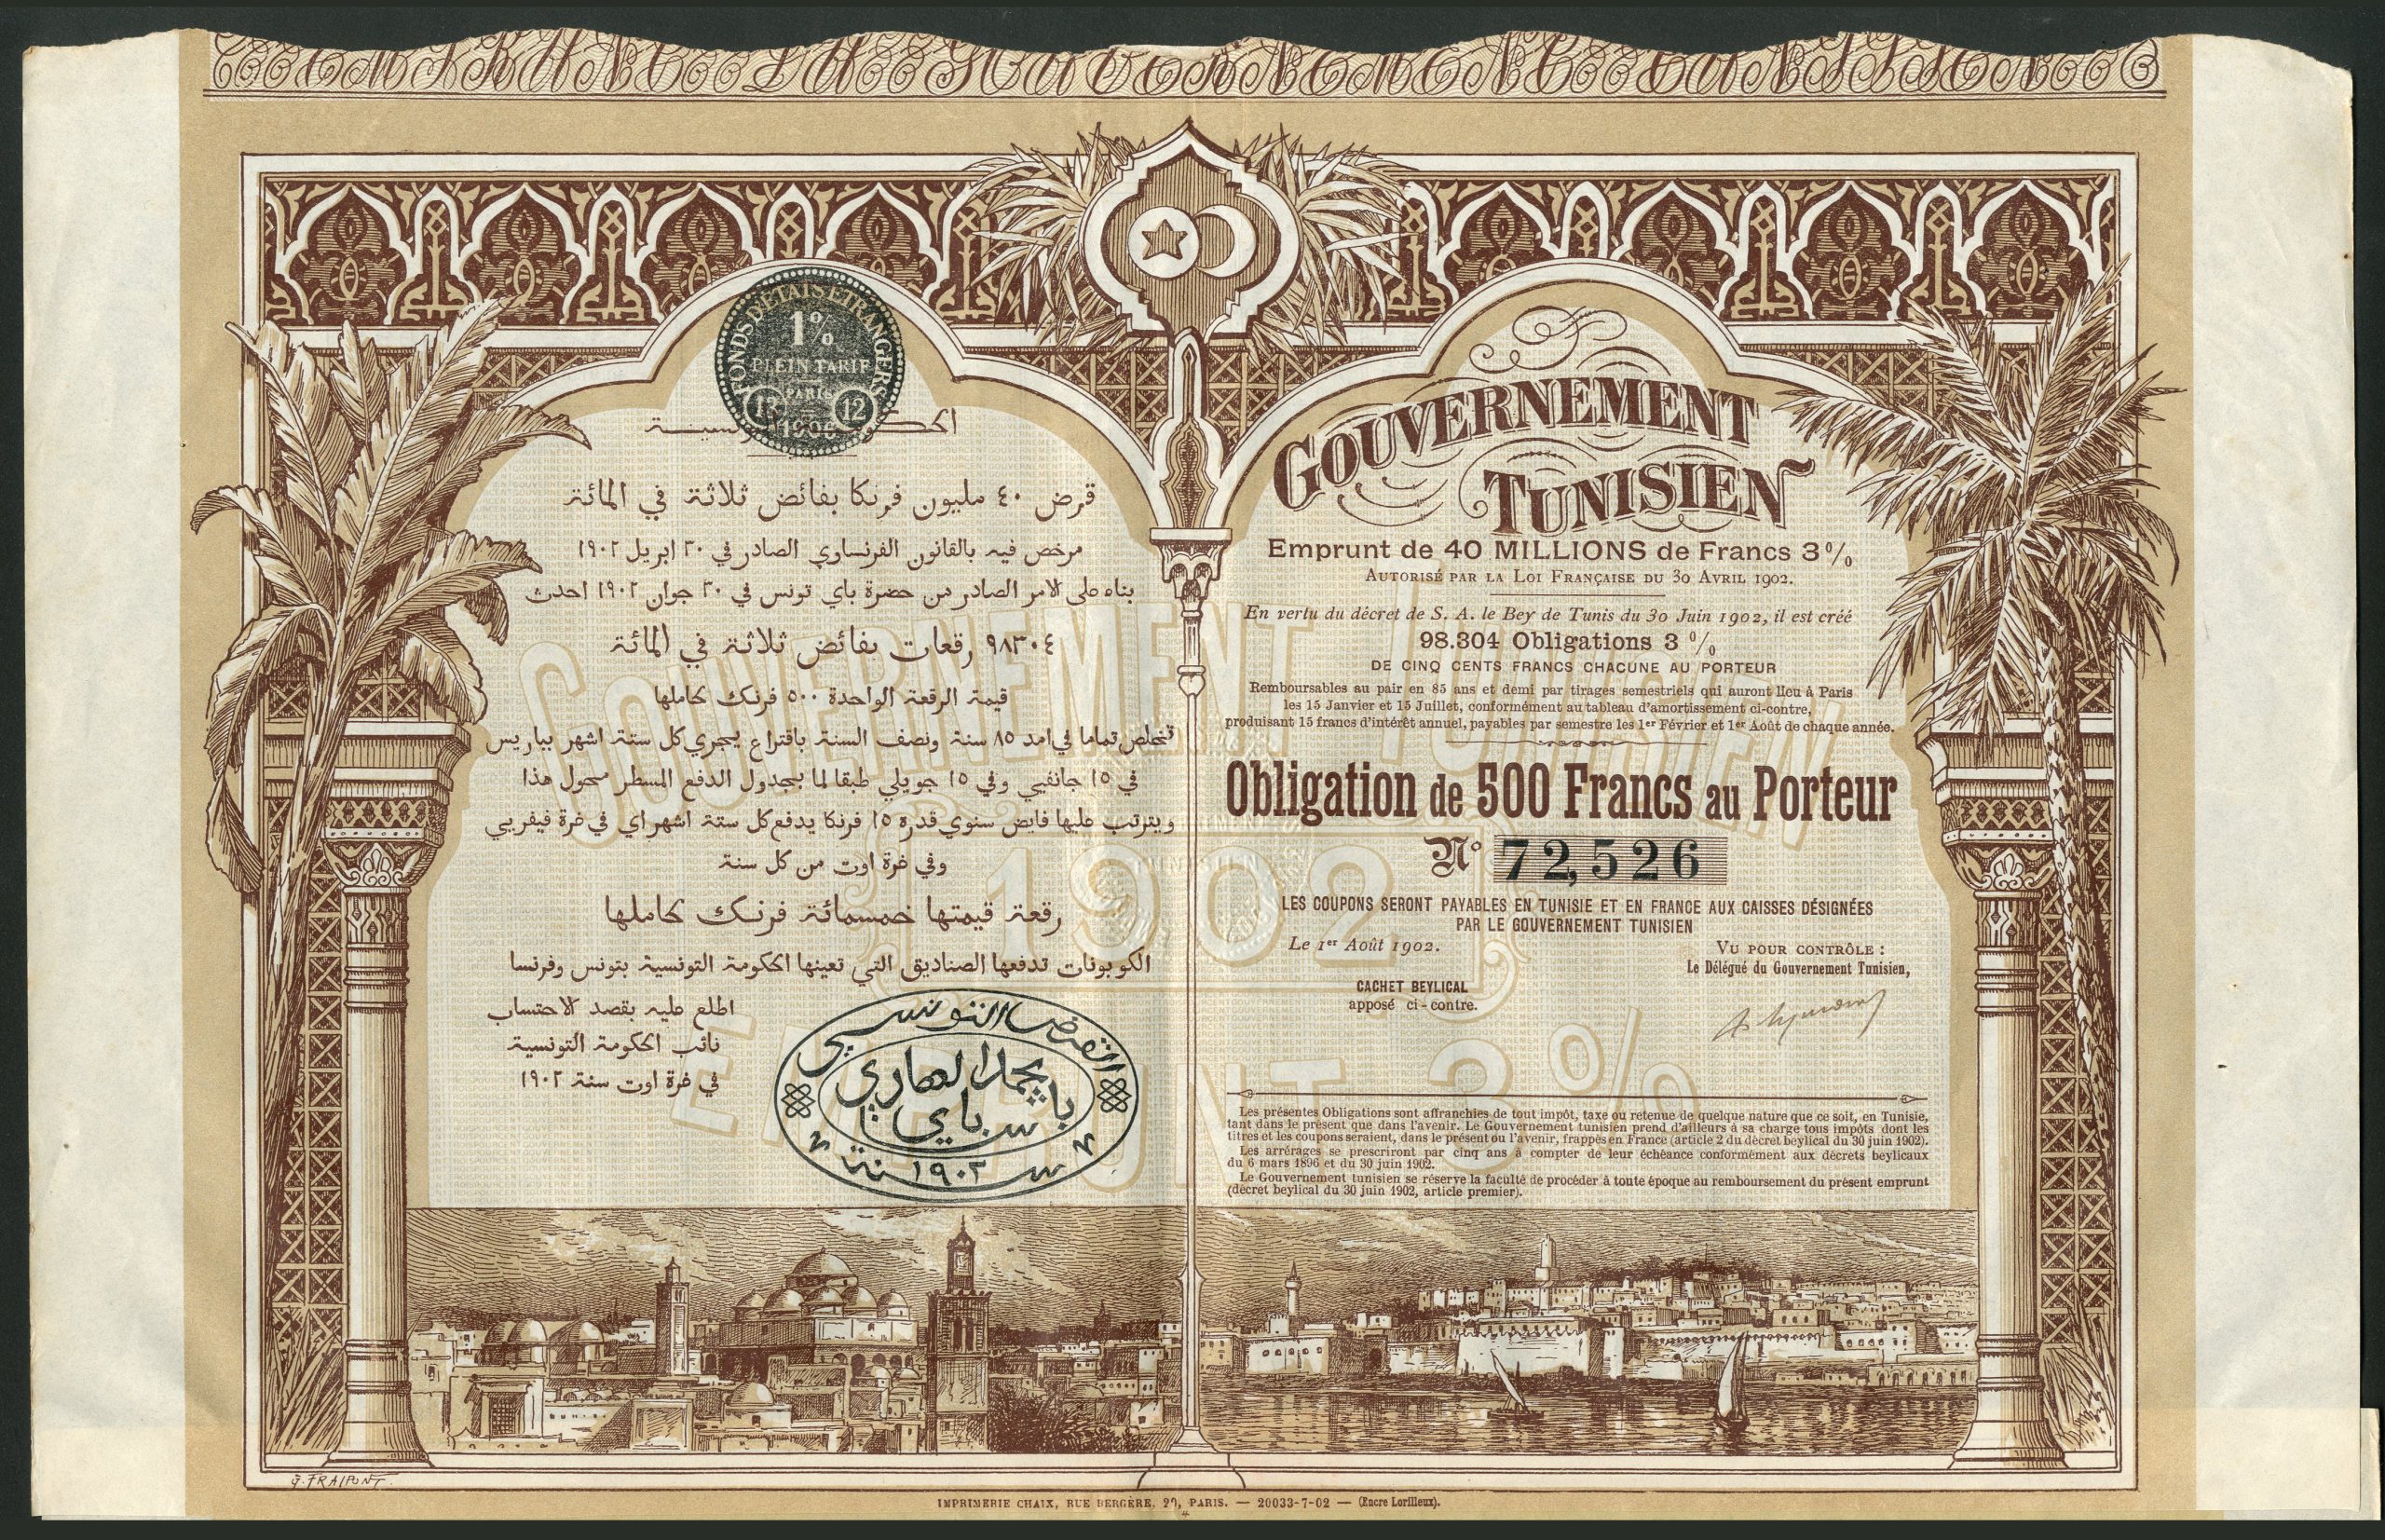 FONDS D'ÉTATS ÉTRANGERS
1%
PLEIN TARIF
PARIS
12
قرض ٤٠ مليون فرنكا بفائض ثلاثة في المائة
مرخص فيه بالقانون الفرنساوي الصادر في ٣٠ ابريل ١٩٠٢
بناء على الامر الصادر من حضرة باي تونس في ٣٠ جوان ١٩٠٢ احدث
٩٨٣٠٤ رقعات بفائض ثلاثة في المائة
قيمة الرقعة الواحدة ٥٠٠ فرنك كاملها
تتخلص تماما في امد ٨٥ سنة ونصف السنة باقتراع يجري كل ستة اشهر بباريس
في ١٥ جانفيي وفي ١٥ جويلي طبقا لما بجدول الدفع المسطر محول هذا
ويترتب عليها فايض سنوي قدره ١٥ فرنكا يدفع كل ستة اشهر اي في غرة فيفريي
وفي غرة اوت من كل سنة
رقعة قيمتها خمسمائة فرنك كاملها
الكوبونات تدفعها الصناديق التي تعينها الحكومة التونسية بتونس وفرنسا
اطلع عليه بقصد الاحتساب
نائب الحكومة التونسية
في غرة اوت سنة ١٩٠٢
سنة ١٩٠٢
GOUVERNEMENT
TUNISIEN
Emprunt de 40 MILLIONS de Francs 3%
AUTORISÉ PAR LA LOI FRANÇAISE DU 30 AVRIL 1902.
En vertu du décret de S. A. le Bey de Tunis du 30 Juin 1902, il est créé
98.304 Obligations 3 %
DE CINQ CENTS FRANCS CHACUNE AU PORTEUR
Remboursables au pair en 85 ans et demi par tirages semestriels qui auront lieu à Paris
les 15 Janvier et 15 Juillet, conformément au tableau d'amortissement ci-contre,
produisant 15 francs d'intérêt annuel, payables par semestre les 1er Février et 1er Août de chaque année.
Obligation de 500 Francs au Porteur
N° 72,526
LES COUPONS SERONT PAYABLES EN TUNISIE ET EN FRANCE AUX CAISSES DÉSIGNÉES
PAR LE GOUVERNEMENT TUNISIEN
Le 1er Août 1902.
VU POUR CONTRÔLE :
Le Délégué du Gouvernement Tunisien,
CACHET BEYLICAL
apposé ci-contre.
Les présentes Obligations sont affranchies de tout impôt, taxe ou retenue de quelque nature que ce soit, en Tunisie,
tant dans le présent que dans l'avenir. Le Gouvernement tunisien prend d'ailleurs à sa charge tous impôts dont les
titres et les coupons seraient, dans le présent ou l'avenir, frappés en France (article 2 du décret beylical du 30 juin 1902).
Les arrérages se prescriront par cinq ans à compter de leur échéance conformément aux décrets beylicaux
du 6 mars 1896 et du 30 juin 1902.
Le Gouvernement tunisien se réserve la faculté de procéder à toute époque au remboursement du présent emprunt
(décret beylical du 30 juin 1902, article premier).
GOUVERNEMENT TUNISIEN
1902
EMPRUNT 3%
G. FRAIPONT
IMPRIMERIE CHAIX, RUE BERGÈRE, 20, PARIS. — 20033-7-02 — (Encre Lorilleux).